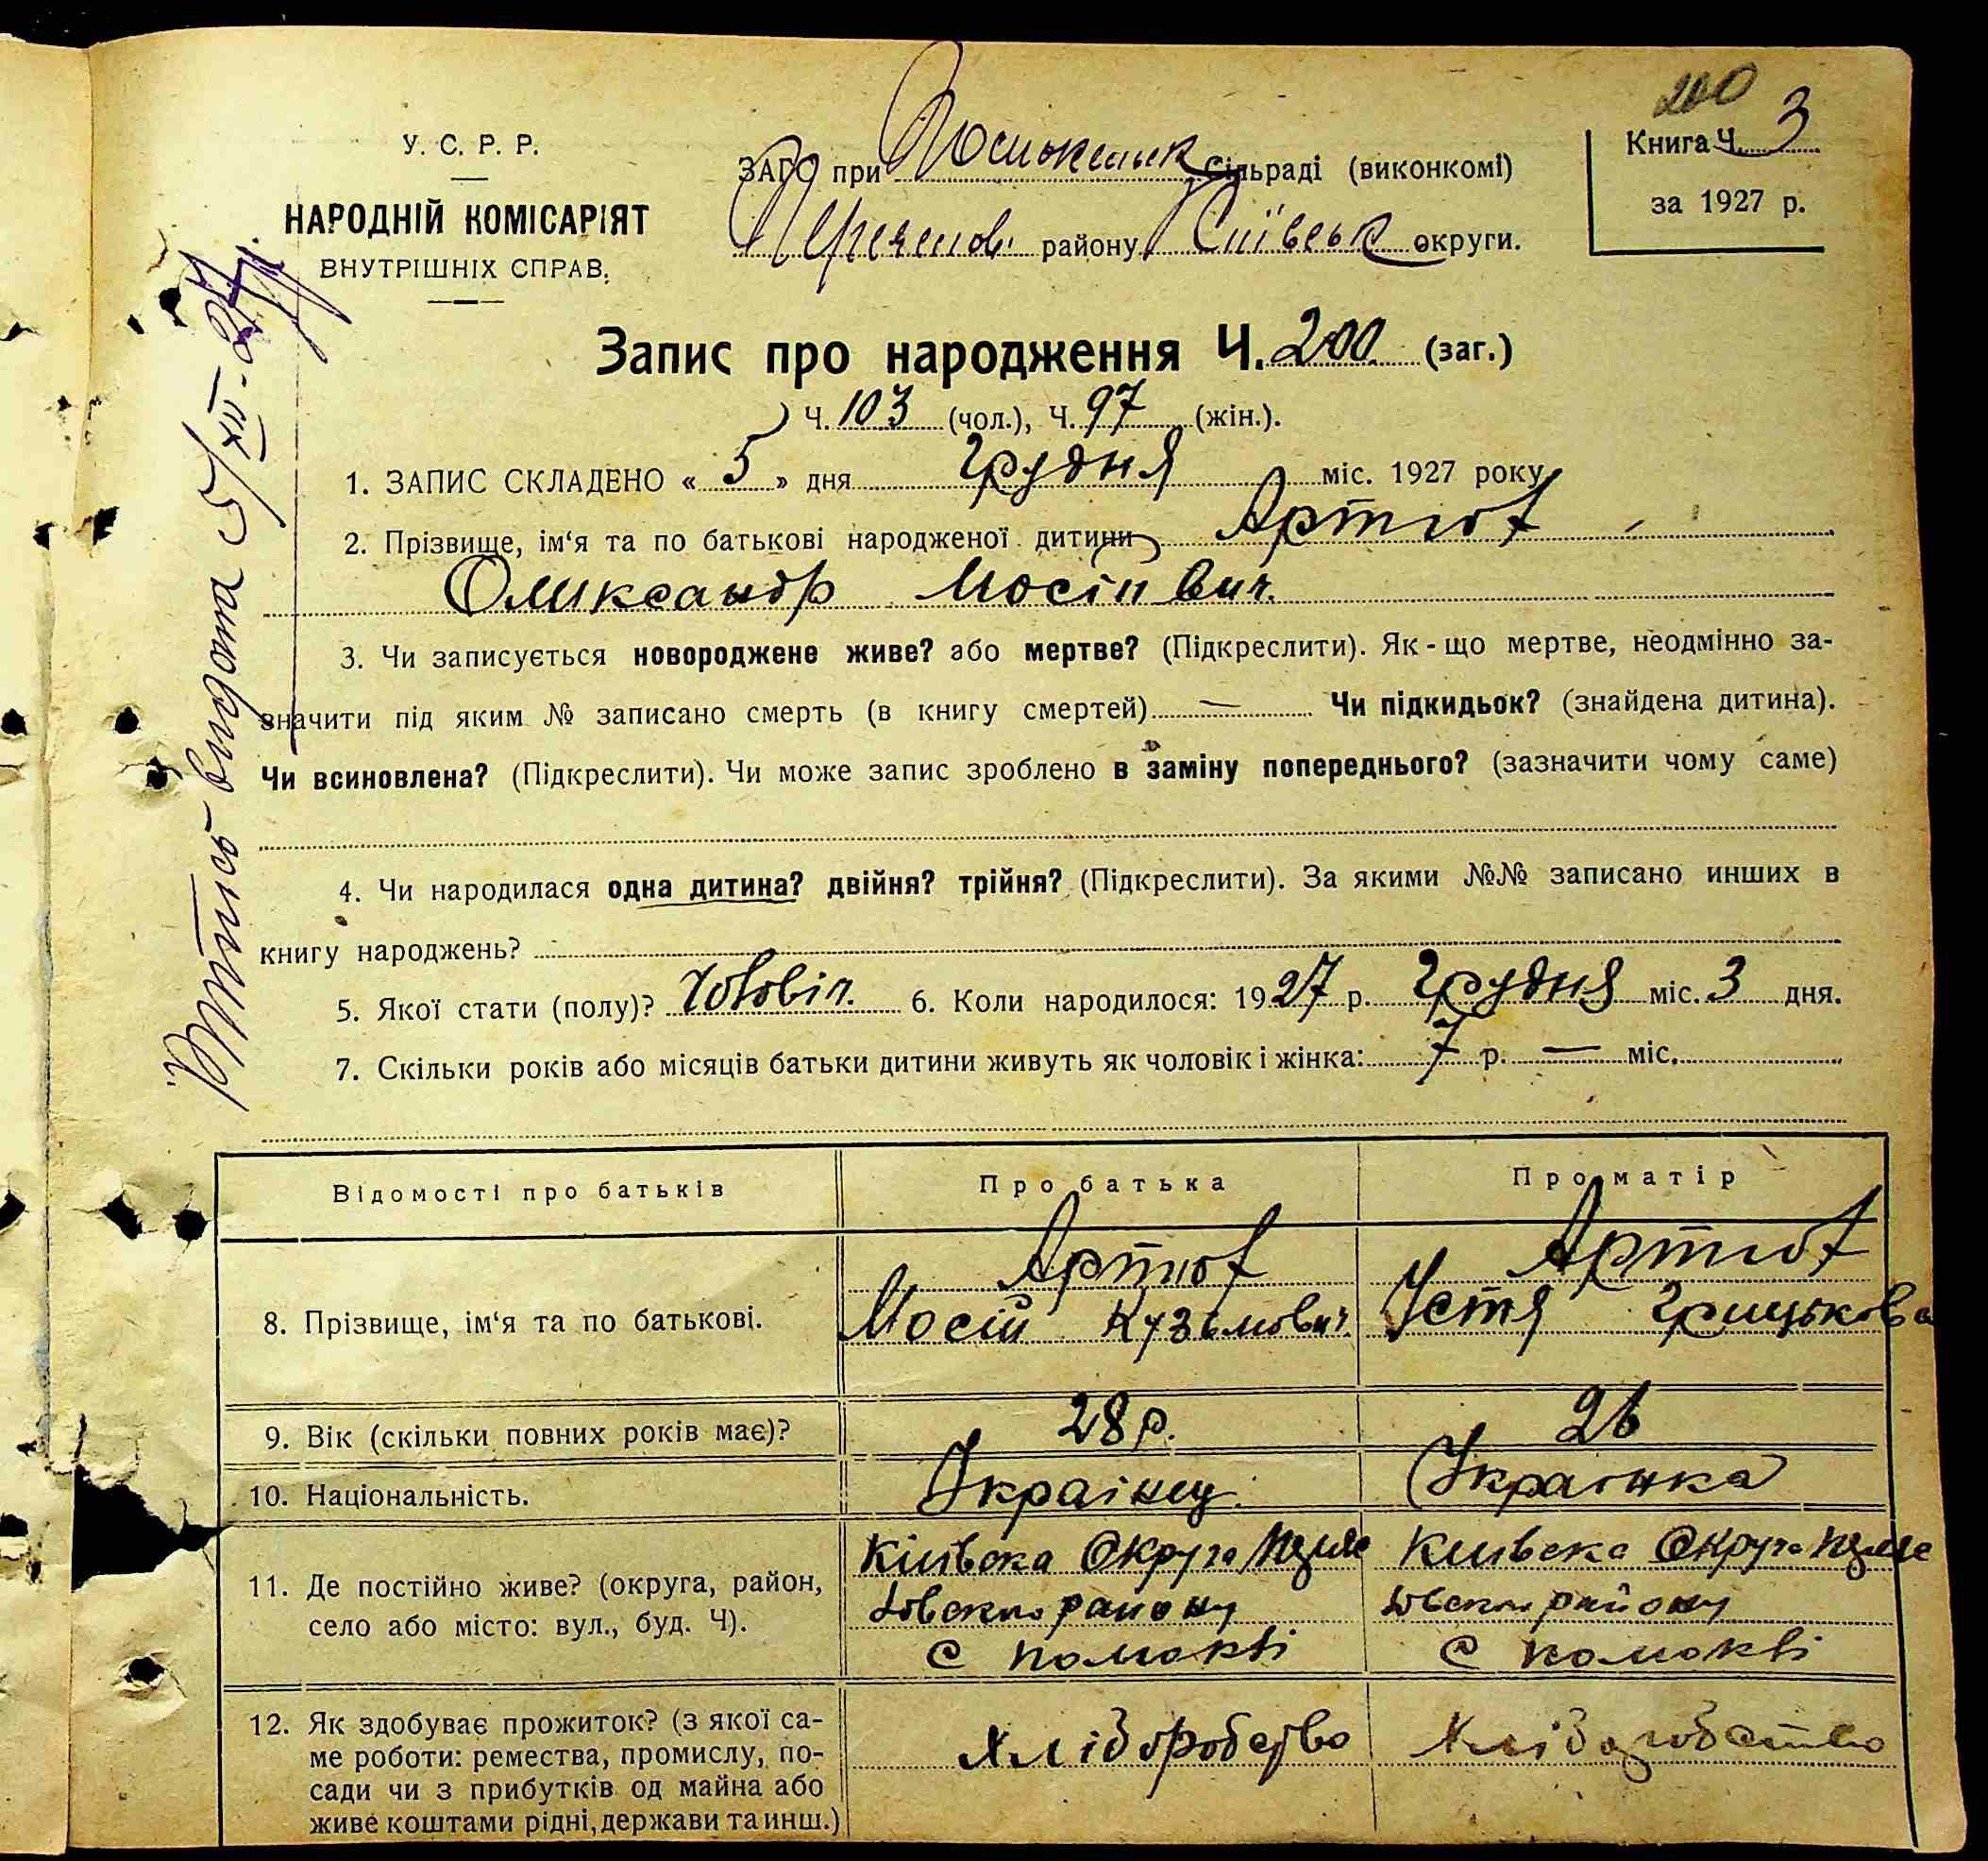 200
У. С. Р. Р.
НАРОДНІЙ КОМІСАРІЯТ
ВНУТРІШНІХ СПРАВ.
ЗАГС при Помоклянськ Сільраді (виконкомі)
району Київськ округи.
Книга Ч. 3
за 1927 р.
Запис про народження Ч. 200 (заг.)
Ч. 103 (чол.), Ч. 97 (жін.).
1. ЗАПИС СКЛАДЕНО « 5 » дня Грудня міс. 1927 року
2. Прізвище, ім'я та по батькові народженої дитини Артюх
Олександр Мосіпвич.
3. Чи записується новороджене живе? або мертве? (Підкреслити). Як-що мертве, неодмінно за-
значити під яким № записано смерть (в книгу смертей) — Чи підкидьок? (знайдена дитина).
Чи всиновлена? (Підкреслити). Чи може запис зроблено в заміну попереднього? (зазначити чому саме)
4. Чи народилася одна дитина? двійня? трійня? (Підкреслити). За якими №№ записано инших в
книгу народжень?
5. Якої стати (полу)? Чоловіч. 6. Коли народилося: 1927 р. Грудня міс. 3 дня.
7. Скільки років або місяців батьки дитини живуть як чоловік і жінка: 7 р. — міс.
Відомості про батьків Про батька Про матір
8. Прізвище, ім'я та по батькові.
Артюх
Мосій Кузьмович
Артюх
Устя Грицькова
9. Вік (скільки повних років має)? 28 р. 26
10. Національність. Українец Украінка
11. Де постійно живе? (округа, район,
село або місто: вул., буд. Ч).
Київска Округа
району
С Помоклі
Київска Округа
району
С Помоклі
12. Як здобуває прожиток? (з якої са-
ме роботи: ремества, промислу, по-
сади чи з прибутків од майна або
живе коштами рідні, держави та инш.)
Хліборобство
Хліборобство
Витпись видата 5/XII-27 р.